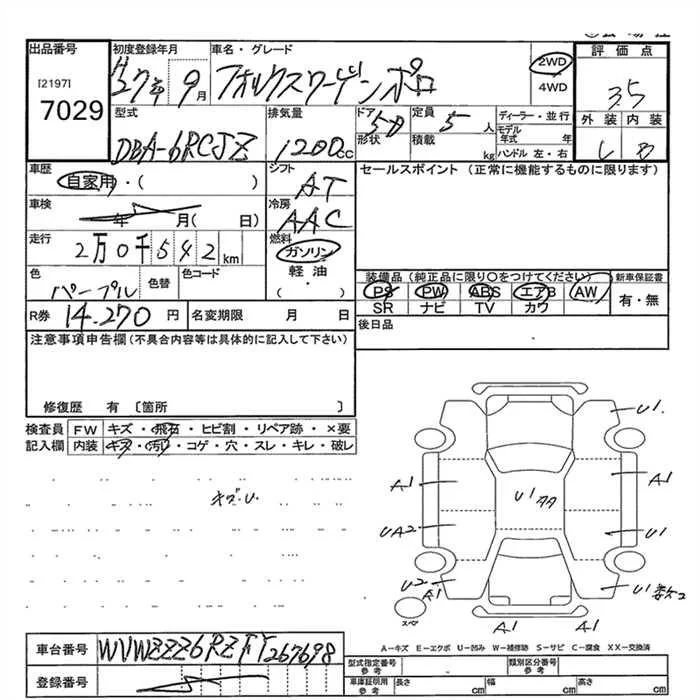 出品番号 初度登録年月 車名・グレード 評価点
[2197]
7029
H27年 9月 フォルクスワーゲン ポロ
2WD
4WD
3.5
型式 排気量 ドア 定員 ディーラー・並行
外装 内装
DBA-6RCJZ 1200cc 5D 5人
モデル年式 年
形状 積載 kg ハンドル 左・右
車歴 シフト セールスポイント (正常に機能するものに限ります)
自家用・( ) AT
車検 冷房
年 月( 日) AAC
走行 燃料
2万0千542km ガソリン
装備品 (純正品に限り○をつけてください) 新車保証書
色 色替 色コード 軽油
パープル ・( )
PS PW ABS エアB AW 有・無
SR ナビ TV カワ
R券 14.270円 名変期限 月 日
後日品
注意事項申告欄(不具合内容等は具体的に記入して下さい)
修復歴 有 〔箇所 〕
検査員 FW キズ・飛石・ヒビ割・リペア跡・×要
記入欄 内装 キズ・汚れ・コゲ・穴・スレ・キレ・破レ
キズ・U.
U1.
A1 A1
U1タタ
UA2 U1
U2 A1 U1
A1 A1
スペア
A-キズ E-エクボ U-凹み W-補修跡 S-サビ C-腐食 XX-交換済
車台番号 WVWZZZ6RZFY267698
型式指定番号 参考 類別区分番号 参考
登録番号
車庫証明用 参考 長さ cm 幅 cm 高さ cm